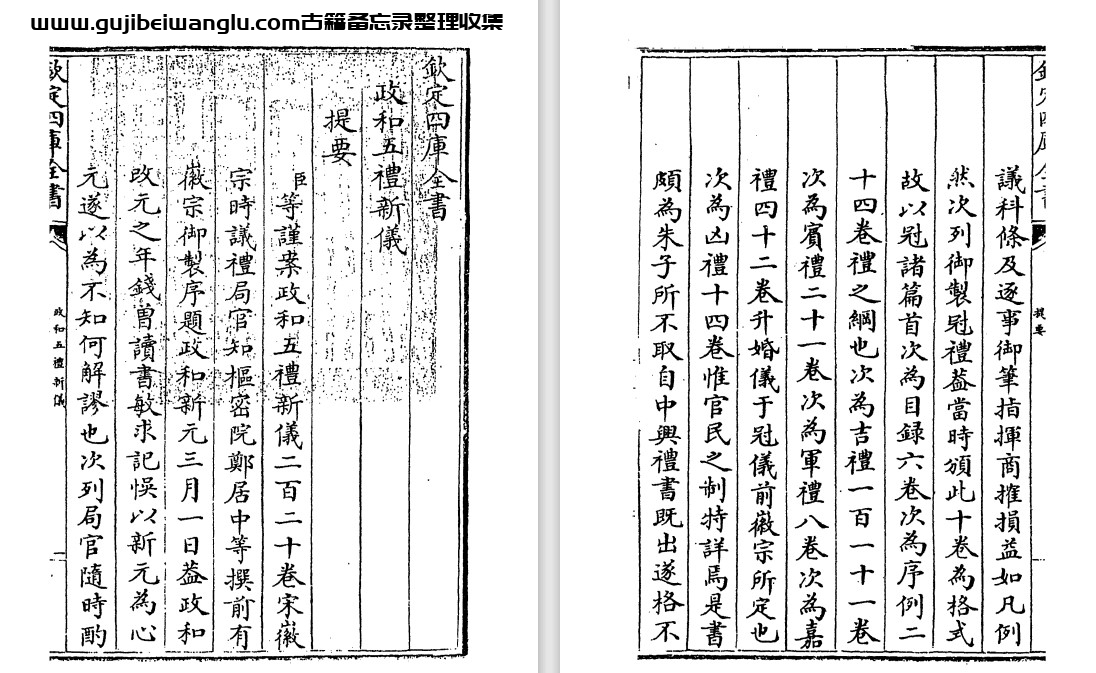 www.gujibeiwanglu.com古籍备忘录整理收集
欽定四庫全書
政和五禮新儀
提要
臣等謹案政和五禮新儀二百二十卷宋徽
宗時議禮局官知樞密院鄭居中等撰前有
徽宗御製序題政和新元三月一日葢政和
改元之年錢曽讀書敏求記悞以新元為心
元遂以為不知何解謬也次列局官隨時酌
欽定四庫全書
政和五禮新儀
一
欽定四庫全書
提要
議科條及逐事御筆指揮商搉損益如凡例
然次列御製冠禮葢當時頒此十卷為格式
故以冠諸篇首次為目録六卷次為序例二
十四卷禮之綱也次為吉禮一百一十一卷
次為賓禮二十一卷次為軍禮八卷次為嘉
禮四十二卷升婚儀于冠儀前徽宗所定也
次為凶禮十四卷惟官民之制特詳焉是書
頗為朱子所不取自中興禮書既出遂格不